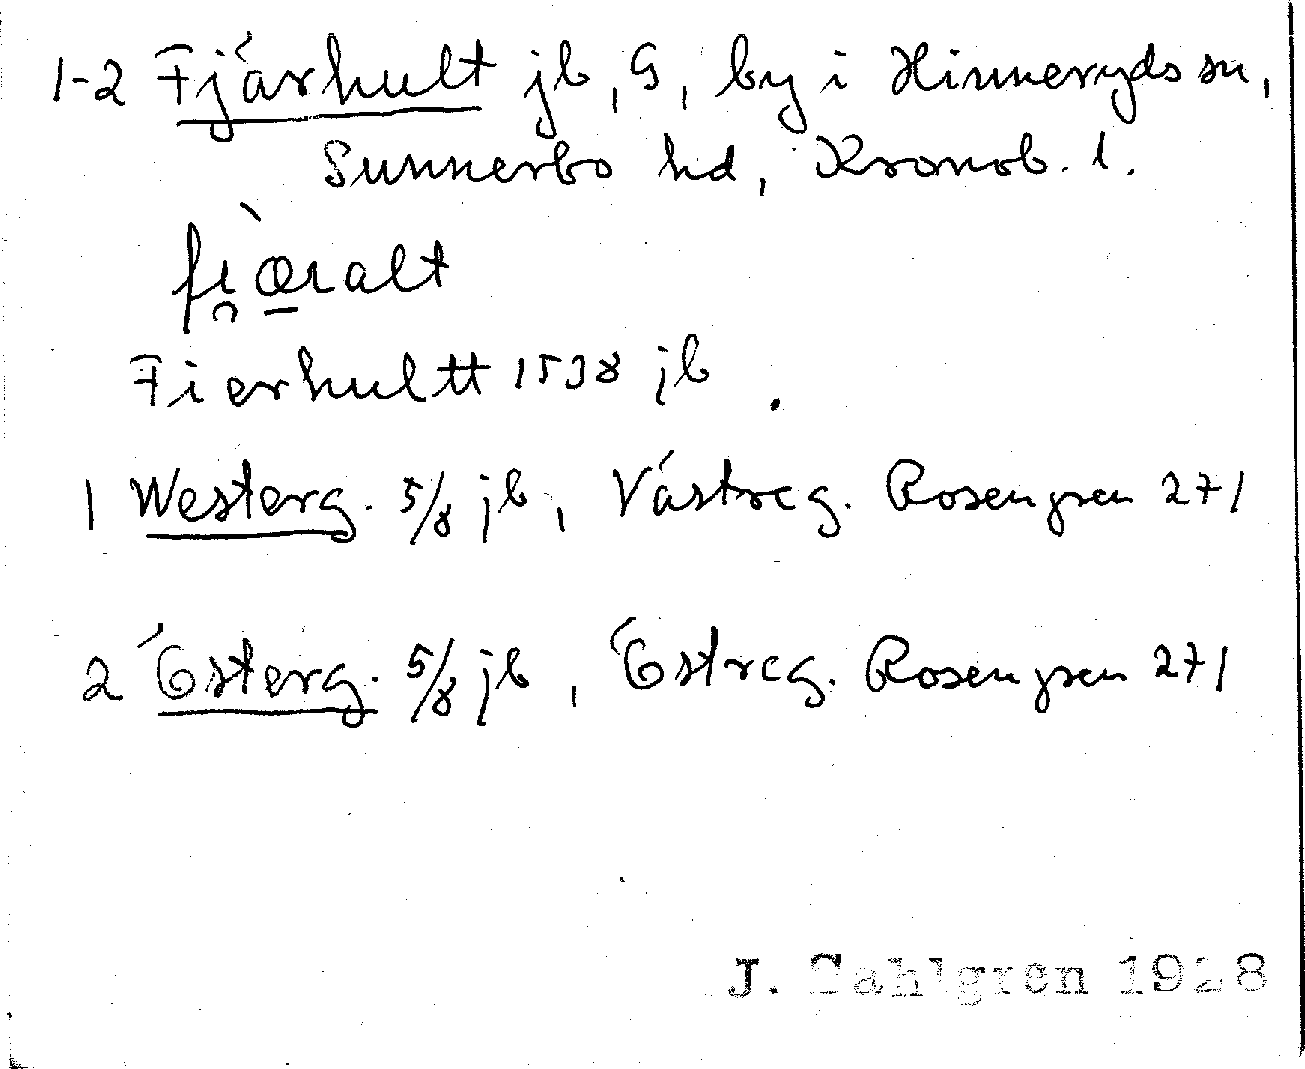 1-2 Fjärhult jb, G, by i Hinneryds sn,
Sunnerbo hd, Kronob. l.
fi̯æ̀ralt
Fierhultt 1538 jb.
1 Westerg. 5/8 jb, Västreg. Rosengren 271
2 Österg. 5/8 jb, Östreg. Rosengren 271
J. Sahlgren 1928